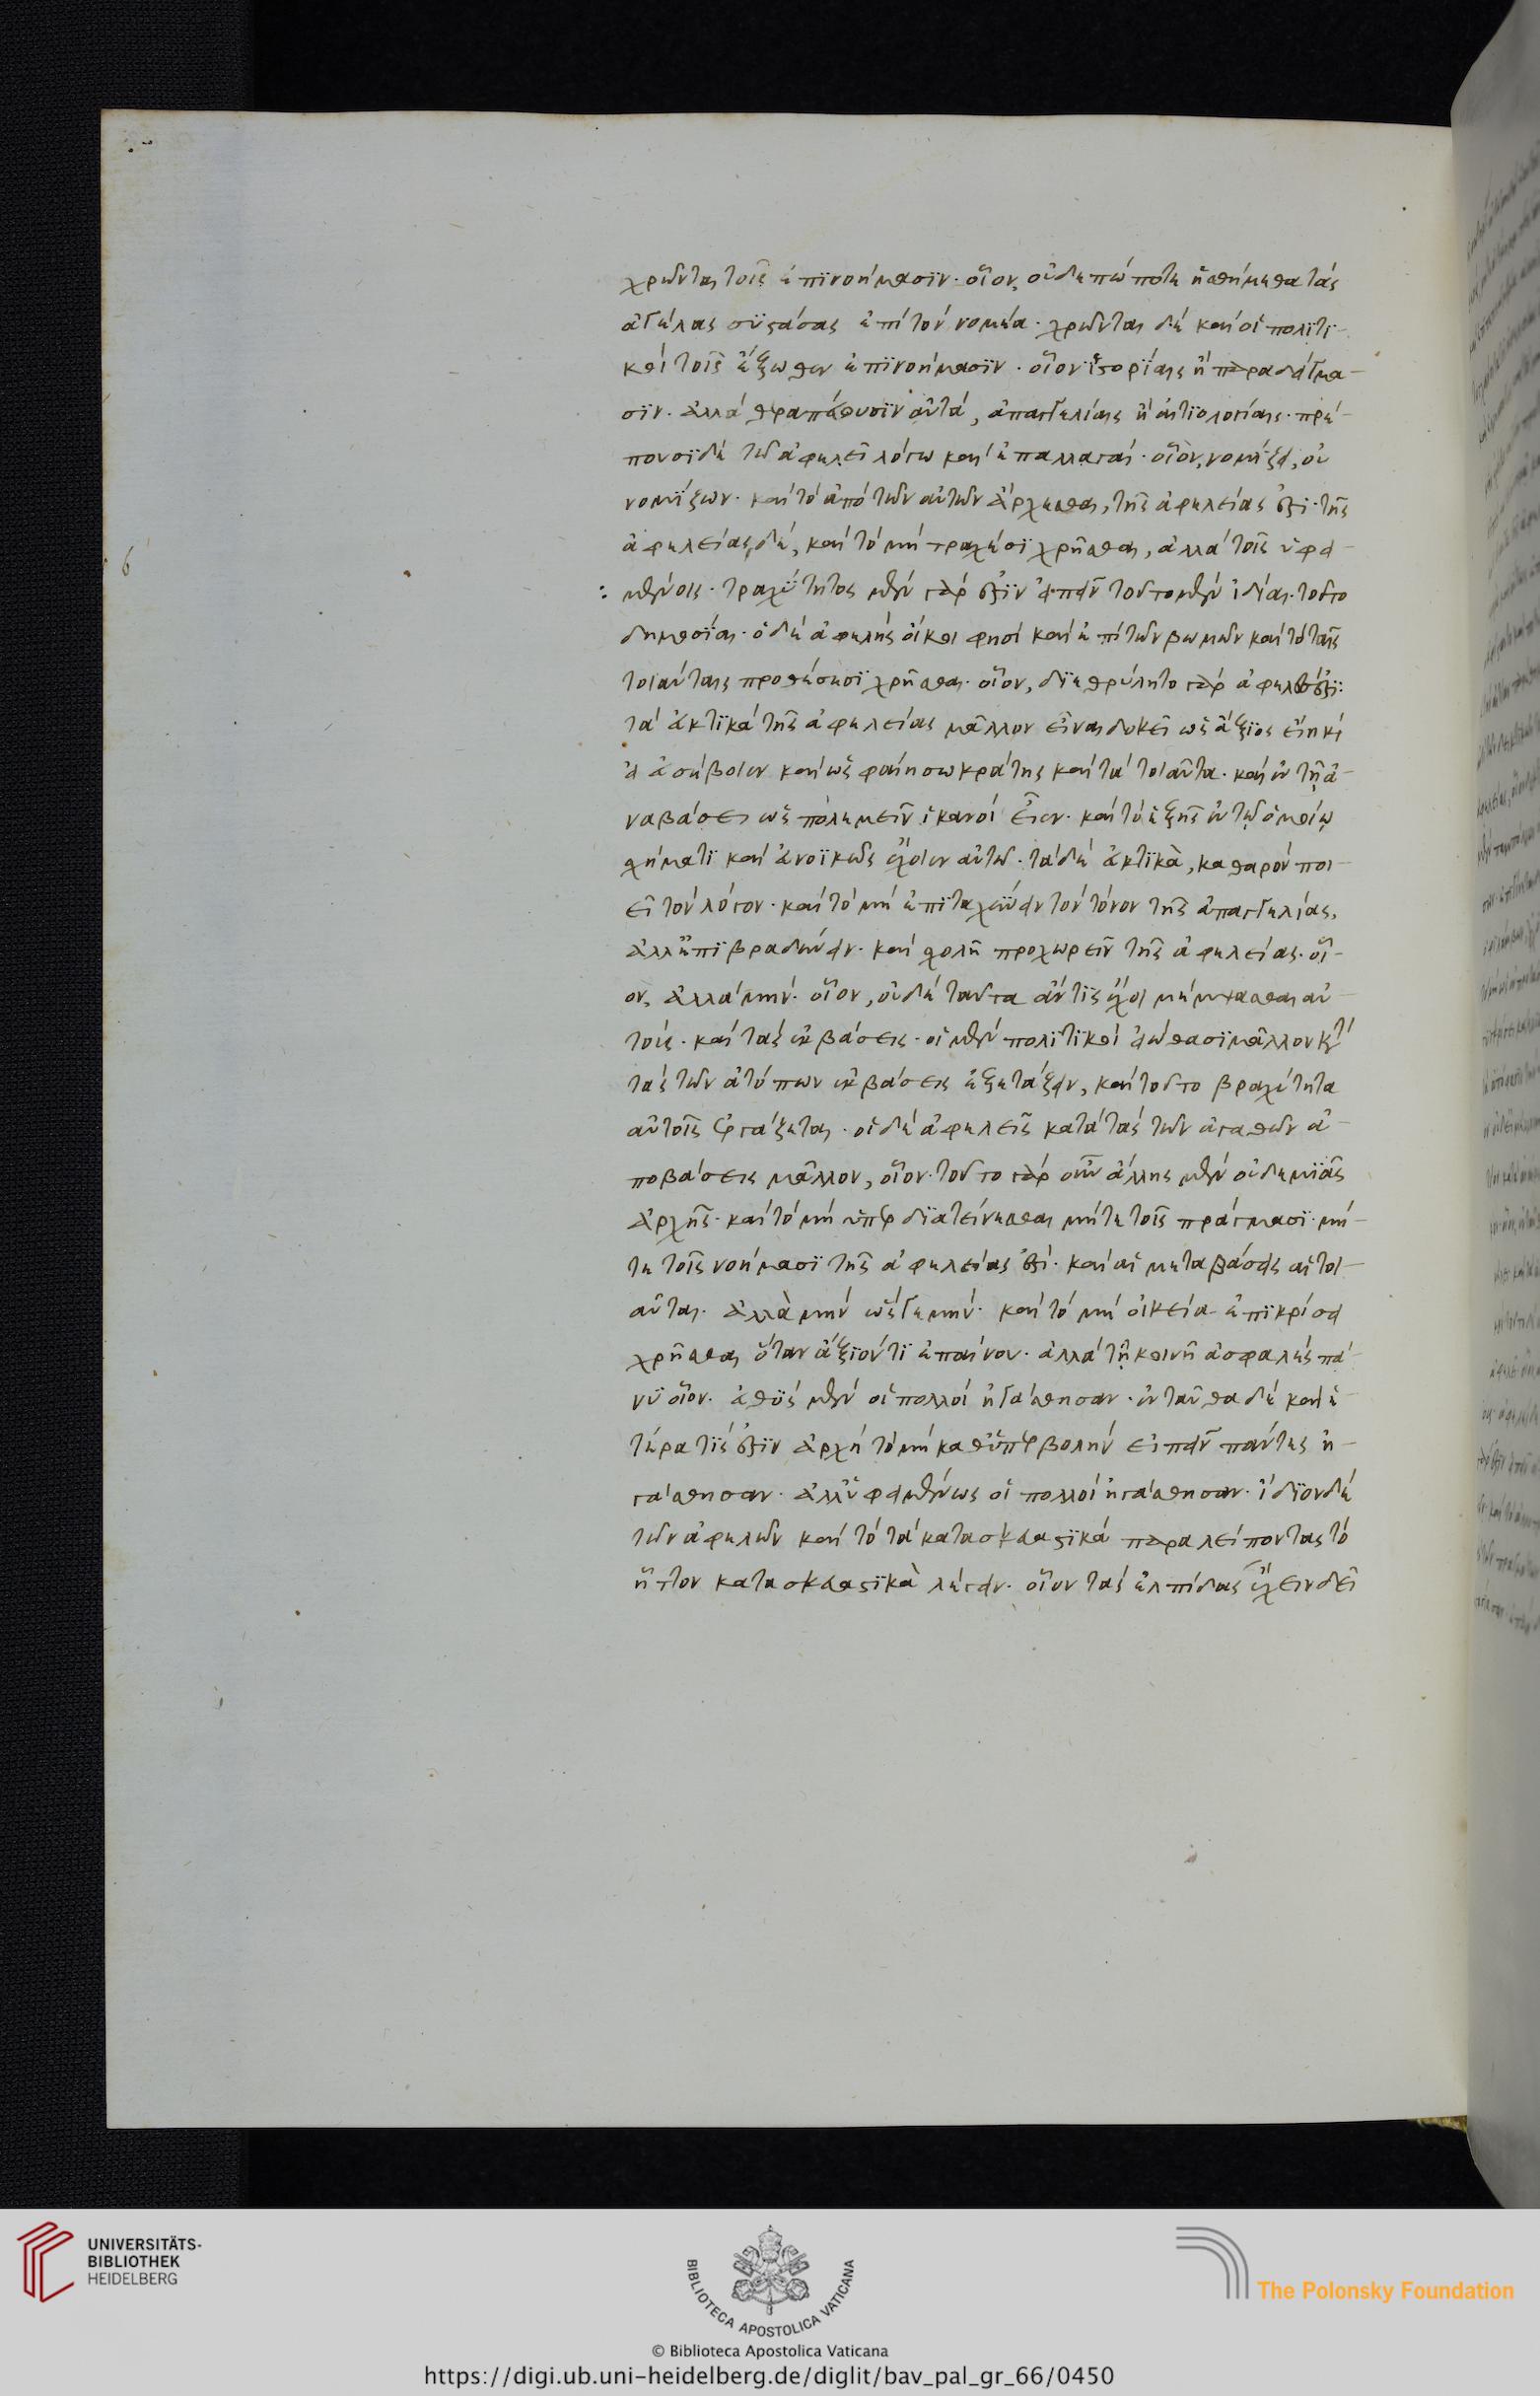 χρῶνται τοῖς ἐπινοήμασιν. οἷον, οὐδεπώποτε ᾐσθήμεθα τὰς
ἀγέλας συστάσας ἐπὶ τὸν νομέα. χρῶνται δὲ καὶ οἱ πολιτι-
κοὶ τοῖς ἔξωθεν ἐπινοήμασιν. οἷον ἱστορίαις ἢ παραδείγμα-
σιν. ἀλλὰ θεραπεύουσιν αὐτὰ, ἀπαγγελίαις ἢ αἰτιολογίαις. πρέ-
πουσι δὲ τῷ ἀφελεῖ λόγῳ καὶ ἐπαλλαγαί. οἷον, νομίζει, οὐ
νομίζων. καὶ τὸ ἀπὸ τῶν αὐτῶν ἄρχεσθαι, τῆς ἀφελείας ἐστί. τῆς
ἀφελείας δὲ, καὶ τὸ μὴ τραχέσι χρῆσθαι, ἀλλὰ τοῖς ὑφει-
6
: μένοις. τραχύτητος μὲν γάρ ἐστιν εἰπεῖν τοῦτο μὲν ἰδίαι. τοῦτο
δημοσίαι. ὁ δὲ ἀφελὴς οἴκοι φησὶ καὶ ἐπὶ τῶν βωμῶν καὶ τὸ ταῖς
τοιαύταις προθέσεσι χρῆσθαι. οἷον, διεθρύλητο γὰρ ἀφελές ἐστι:
τὰ εὐκτικὰ τῆς ἀφελείας μᾶλλον εἶναι δοκεῖ ὡς ἄξιος εἴη καὶ
εἰ ἀσέβοιεν καὶ ὡς φαίη σωκράτης καὶ τὰ τοιαῦτα. καὶ ἐν τῇ ἀ-
ναβάσει ὡς πολεμεῖν ἱκανοὶ εἶεν. καὶ τὸ ἑξῆς ἐν τῷ ὁμοίῳ
σχήματι καὶ εὐνοϊκῶς ἔχοιεν αὐτῷ. τὰ δὲ εὐκτικὰ, καθαρὸν ποι-
εῖ τὸν λόγον. καὶ τὸ μὴ ἐπιταχύνειν τὸν τόνον τῆς ἀπαγγελίας,
ἀλλ' ἐπιβραδύνειν. καὶ σχολῇ προχωρεῖν τῆς ἀφελείας. οἷ-
ον, ἀλλὰ μήν. οἷον, οὐδὲ ταῦτα ἄν τις ἔχοι μέμψασθαι αὐ-
τοῖς. καὶ τὰς ἐκβάσεις. οἱ μὲν πολιτικοὶ εἰώθασι μᾶλλον κατὰ
τὰς τῶν ἀτόπων ἐκβάσεις ἐξετάζειν, καὶ τοῦτο βραχύτητα
αὐτοῖς ἐργάζεται. οἱ δὲ ἀφελεῖς κατὰ τὰς τῶν ἀγαθῶν ἀ-
ποβάσεις μᾶλλον, οἷον. τοῦτο γὰρ οὖν ἄλλης μὲν οὐδεμιᾶς
ἀρχῆς. καὶ τὸ μὴ ὑπερδιατείνεσθαι μήτε τοῖς πράγμασι. μή-
τε τοῖς νοήμασι τῆς ἀφελείας ἐστί. καὶ αἱ μεταβάσεις αἱ τοι-
αῦται. ἀλλὰ μὴν ὥς γε μήν. καὶ τὸ μὴ οἰκεία ἐπικρίσει
χρῆσθαι ὅταν ἄξιον τι ἐπαίνου. ἀλλὰ τῇ κοινῇ ἀσφαλὲς πά-
νυ οἷον. εὐθὺς μὲν οἱ πολλοὶ ἠγάσθησαν. ἐνταῦθα δὲ καὶ ἑ-
τέρα τίς ἐστιν ἀρχὴ τὸ μὴ καθ' ὑπερβολὴν εἰπεῖν πάντες ἠ-
γάσθησαν. ἀλλ' ὑφειμένως οἱ πολλοὶ ἠγάσθησαν. ἴδιον δὲ
τῶν ἀφελῶν καὶ τὸ τὰ κατασκευαστικὰ παραλείποντας τὸ
ἧττον κατασκευαστικὰ λέγειν. οἷον τὰς ἐλπίδας ἔχειν δεῖ
UNIVERSITÄTS-
BIBLIOTHEK
HEIDELBERG
BIBLIOTECA APOSTOLICA VATICANA
© Biblioteca Apostolica Vaticana
The Polonsky Foundation
https://digi.ub.uni-heidelberg.de/diglit/bav_pal_gr_66/0450